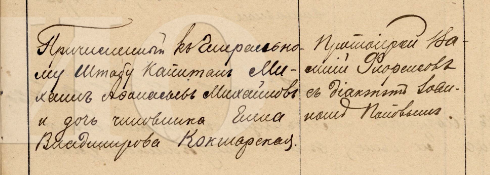 Причисленный къ Генерально-
му Штабу Капитанъ Ми-
хаилъ Афанасьевъ Михайловъ
и дочь чиновника Елена
Владимирова Кокшарская.
Протоіерей Ва-
силій
съ Діакономъ Іоан-
номъ Поповымъ.